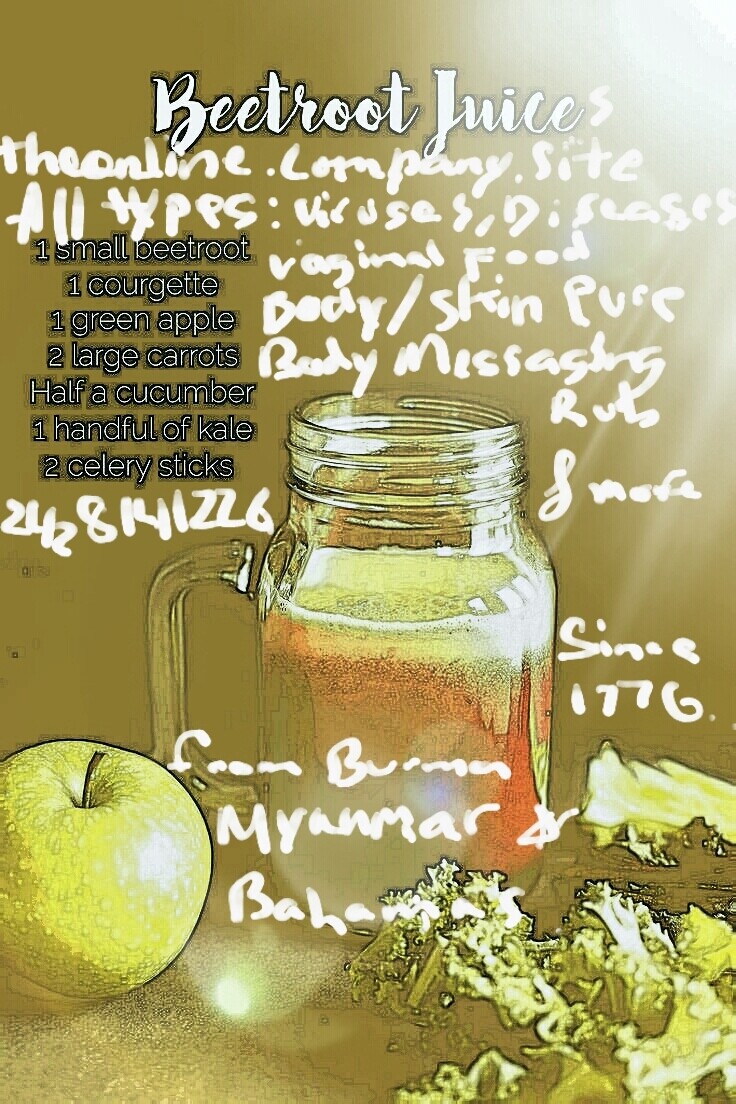 Beetroot Juices
theonline.Company.Site
All Types: Viruses, Diseases
1 small beetroot
vaginal Food
1 courgette
Body/Skin Pure
1 green apple
2 large carrots
Body Messaging
Half a cucumber
Rubs
1 handful of kale
2 celery sticks
& more
2428141226
Since
1776.
from Burma
Myanmar &
Bahamas